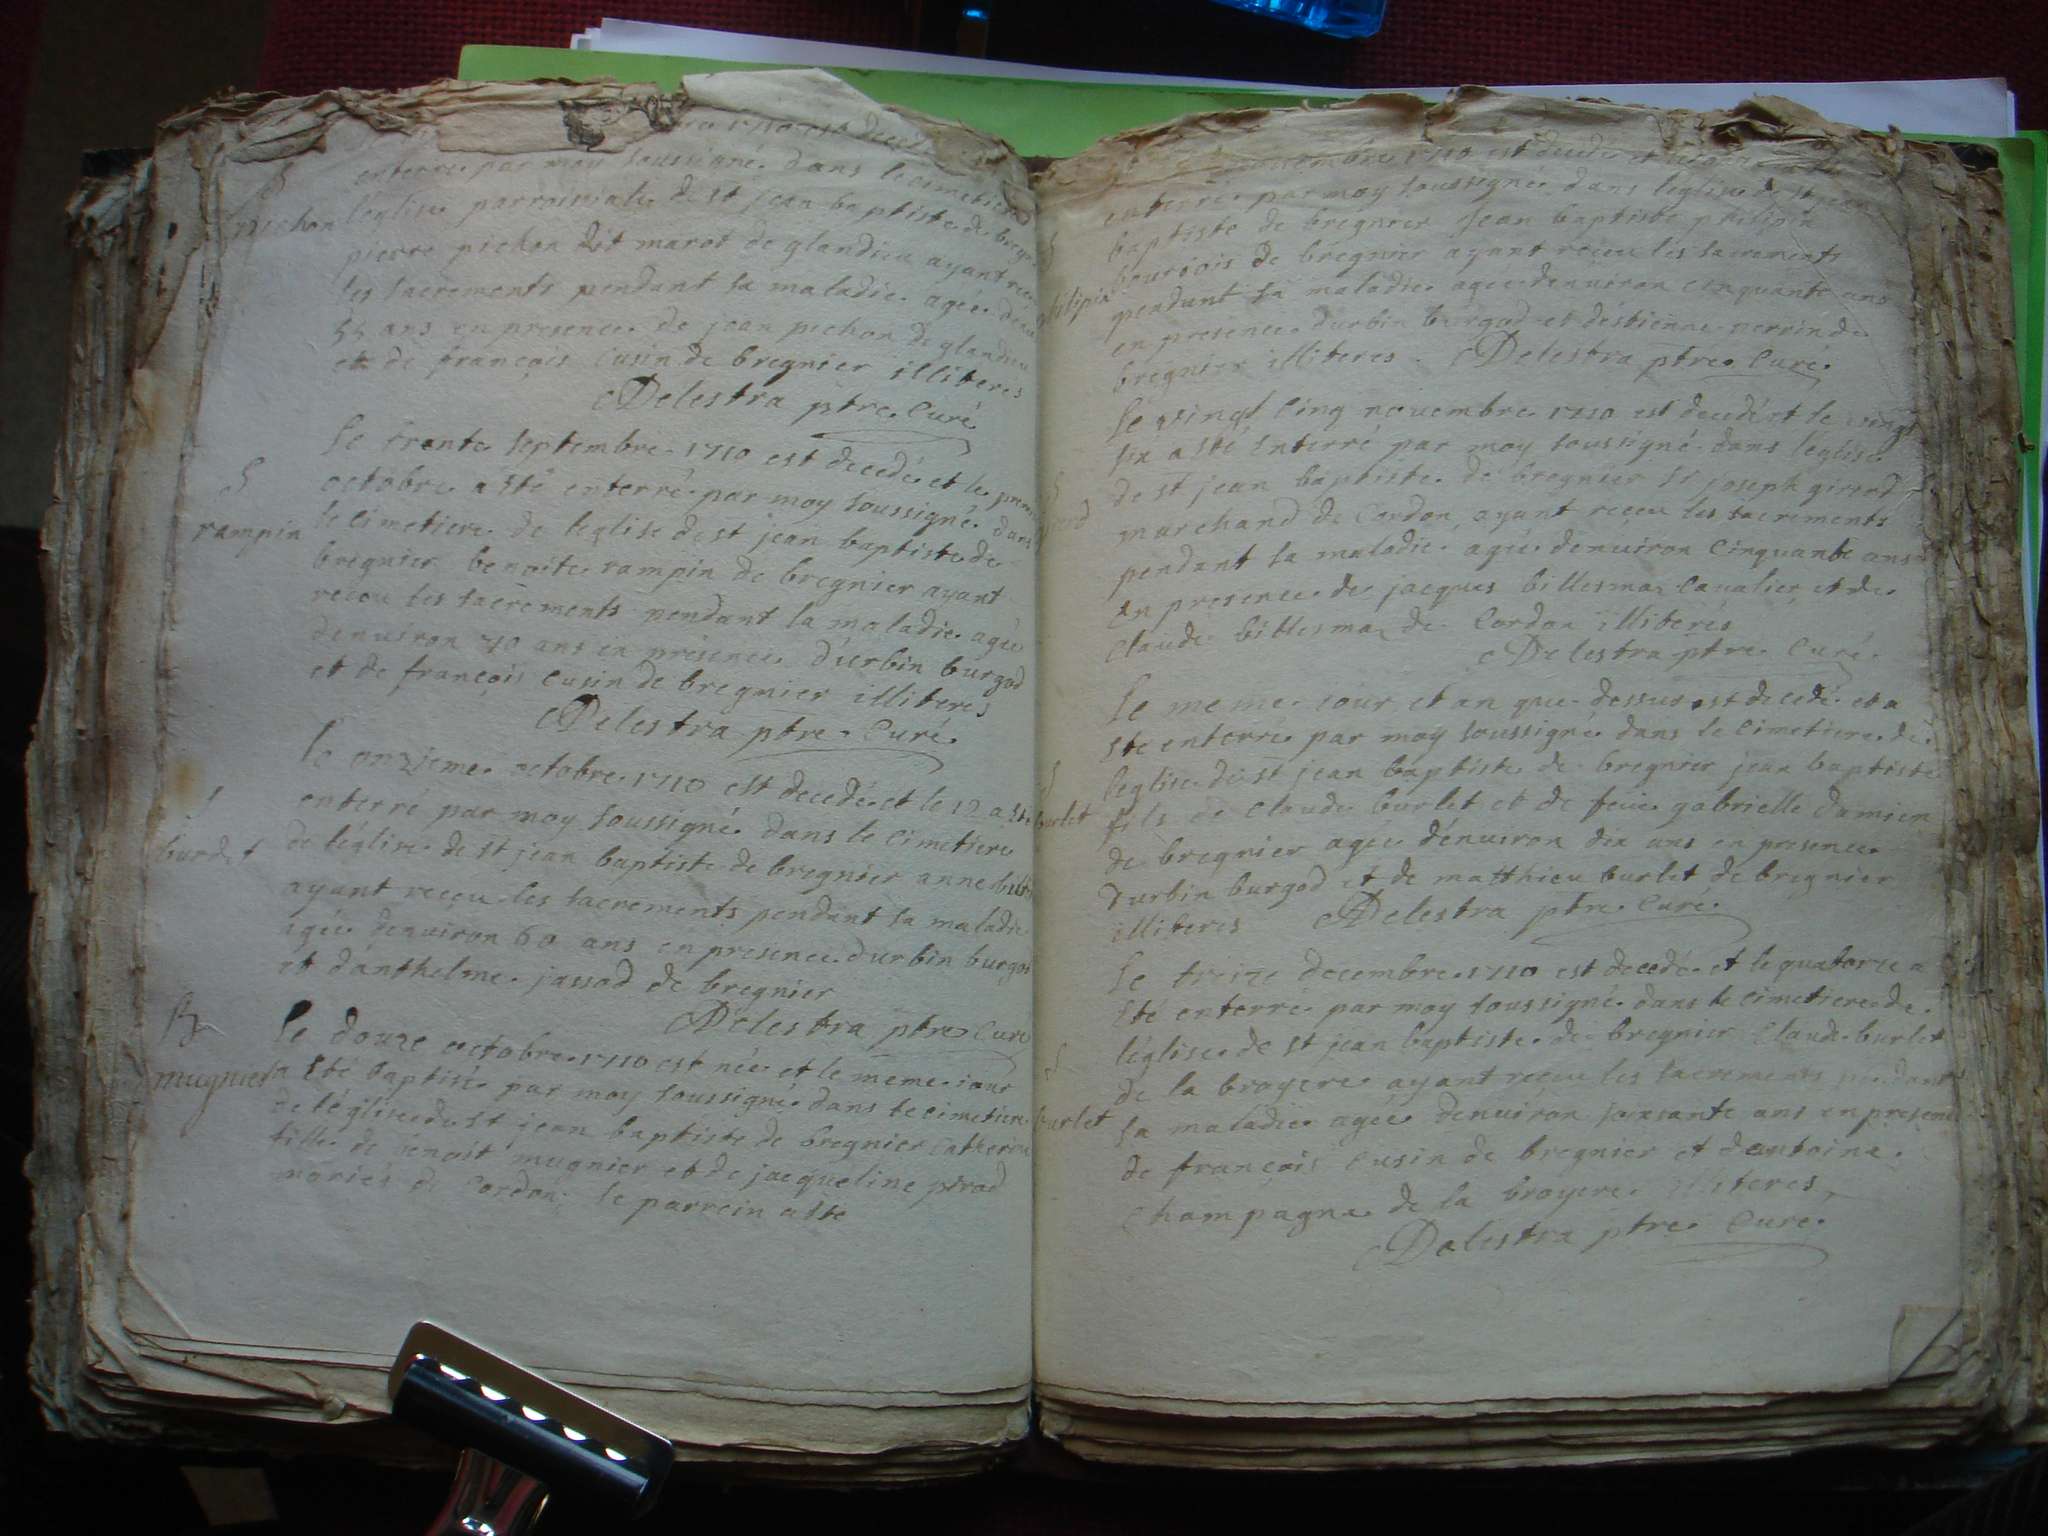 1710 est decedé
enterré par moy soussigné dans le cimetiere
S
pichon
leglise parroissiale de st jean baptiste de bregnier
pierre pichon dit marot de glandieu ayant receu
les sacrements pendant sa maladie agée
55 ans en presence de jean pichon de glandieu
et de françois cusin de bregnier illiteres
Delestra ptre Curé
Le trente septembre 1710 est decedé et le premier
S
rampin
octobre a sté enterré par moy soussigné dans
le cimetiere de leglise de st jean baptiste de
bregnier benoite rampin de bregnier ayant
receu les sacrements pendant la maladie agée
denuiron 70 ans en presence d'urbin burgod
et de françois cusin de bregnier illiteres
Delestra ptre Curé
le onzieme octobre 1710 est decedé et le 12 a sté
S
burdet
enterré par moy soussigné dans le cimetiere
de léglise de st jean baptiste de bregnier anne
ayant receu les sacrements pendant sa maladie
agée denuiron 60 ans en presence durbin burgod
et danthelme jassod de bregnier
Delestra ptre Curé
B
mugnier
le douze octobre 1710 est née et le meme iour
a sté baptisée par moy soussigné dans le cimetiere
de léglise de st jean baptiste de bregnier Catherine
fille de benoit mugnier et de jacqueline
mariés de Cordon le parrein a sté
novembre 1710 est decedé et
enterré par moy soussigné dans leglise de st jean
S
philipin
baptiste de bregnier jean baptiste philipin
bourjois de bregnier ayant receu les sacrements
pendant sa maladie agée denuiron cinquante ans
en presence durbin burgod et destienne perrin de
bregnier illiteres Delestra ptre Curé
Le vingt cinq novembre 1710 est decedé et le vingt
S
girerd
six a sté enterré par moy soussigné dans léglise
de st jean baptiste de bregnier Sr joseph girerd
marchand de Cordon ayant receu les sacrements
pendant sa maladie agée denuiron Cinquante ans
En presence de jacques billesmaz Caualier et de
Claude billesmaz de Cordon illiterés
Delestra ptre Curé
Le meme iour et an que dessus est decedé et a
sté enterré par moy soussigné dans le cimetiere de
S
burlet
leglise de st jean baptiste de bregnier jean baptiste
fils de Claude burlet et de feüe gabrielle damien
de bregnier agée dénuiron dix ans en presence
durbin burgod et de matthieu burlet de bregnier
illiteres Delestra ptre Curé
Le treize decembre 1710 est decedé et le quatorze a
Eté enterré par moy soussigné dans le cimetiere de
S
burlet
léglise de st jean baptiste de bregnier Claude burlet
de la broyere ayant receu les sacrements pendant
sa maladie agée denuiron soixante ans en presence
de françois cusin de bregnier et dantoine
Champagne de la broyere illiteres
Delestra ptre Curé